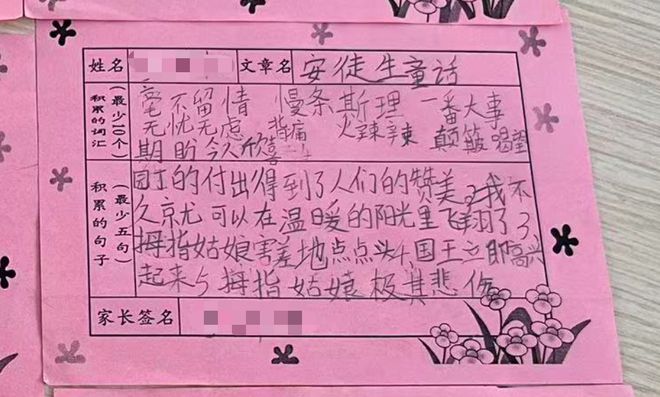 姓名 文章名 安徒生童话
积累的词汇（最少10个）
毫不留情 慢条斯理 一番大事
无忧无虑 背痛 火辣辣 颠簸 渴望
期盼 令人欣喜
积累的句子（最少五句）
的付出得到了人们的赞美2我不
久京尤可以在温暖的阳光里飞翔了3
拇指姑娘害羞地点点头4国王立即高兴
起来5拇指姑娘极其悲伤
家长签名